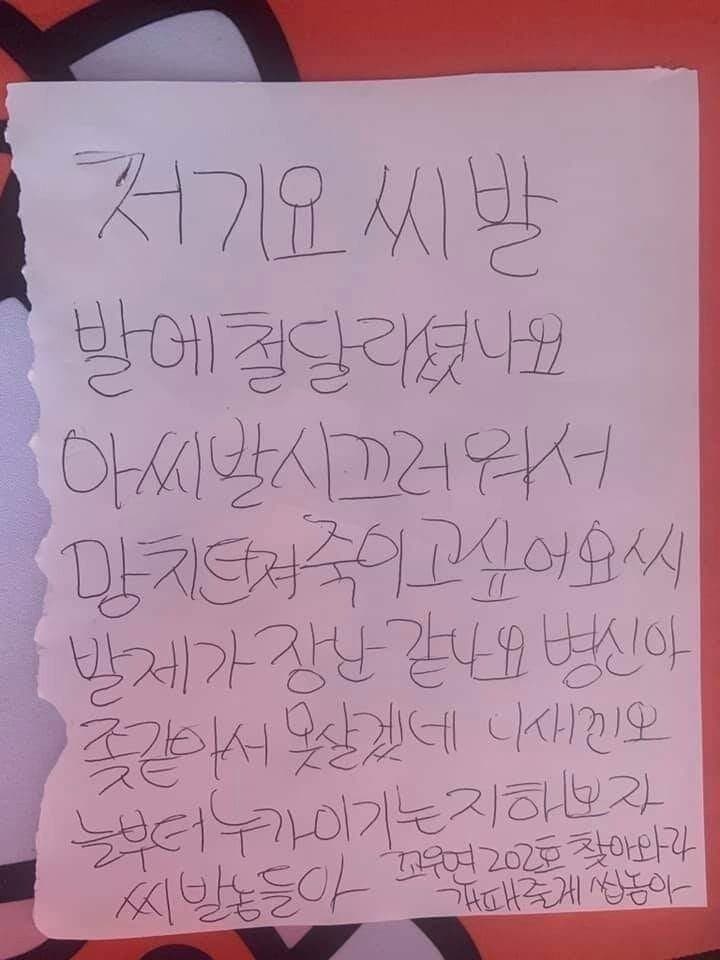 저기요 씨발
발에철달리셨나요
아씨발시끄러워서
망치던져죽이고싶어요씨
발제가 장난 같나요 병신아
좆같아서 못살겠네 니새낀오
늘부터누가이기는지해보자
씨발놈들아
202호 찾아와라
개패줄게 씹놈아